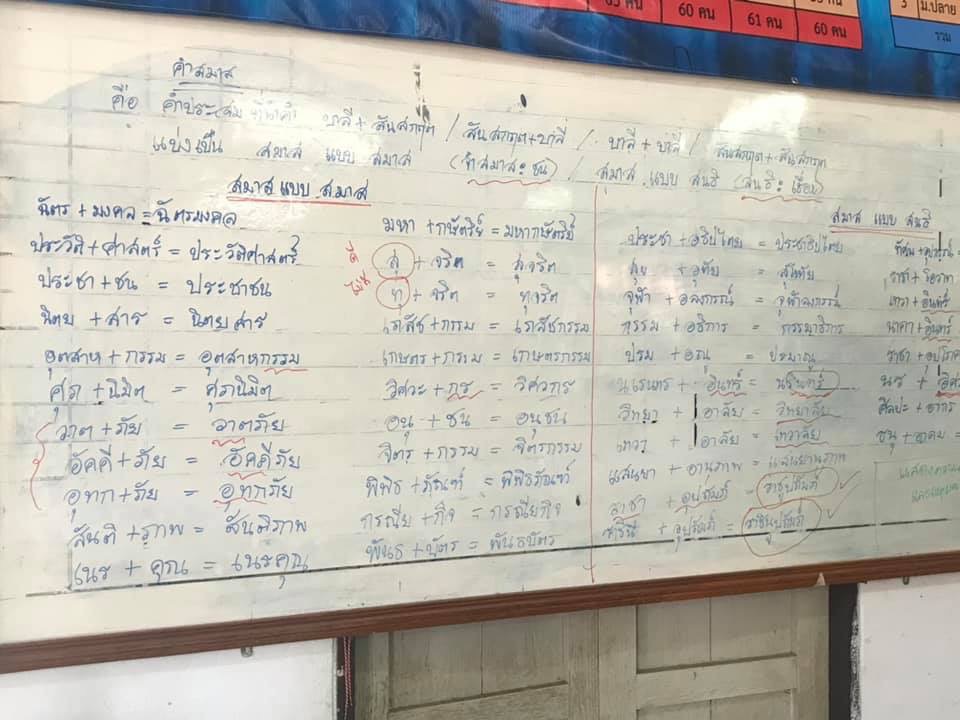 60 คน 61 คน 60 คน
3 ม.ปลาย
รวม
คำสมาส
คือ คำประสม ที่นำคำ บาลี+สันสกฤต / สันสกฤต+บาลี / บาลี+บาลี / สันสกฤต+สันสกฤต
แบ่งเป็น สมาส แบบ สมาส (คำสมาส: ชน) / สมาส แบบ สนธิ (สนธิ: เชื่อม)
สมาส แบบ สมาส
ฉัตร + มงคล = ฉัตรมงคล
ประวัติ+ศาสตร์ = ประวัติศาสตร์
ประชา+ชน = ประชาชน
นิตย + สาร = นิตยสาร
อุตสาห+กรรม = อุตสาหกรรม
ศุภ +นิมิต = ศุภนิมิต
วาต +ภัย = วาตภัย
อัคคี+ภัย = อัคคีภัย
อุทก+ภัย = อุทกภัย
สันติ +ภาพ = สันติภาพ
เนร + คุณ = เนรคุณ
มหา +กษัตริย์ = มหากษัตริย์
ดี สุ + จริต = สุจริต
ไม่ดี ทุ + จริต = ทุจริต
เภสัช+กรรม = เภสัชกรรม
เกษตร+กรรม = เกษตรกรรม
วิศวะ +กร = วิศวกร
อนุ + ชน = อนุชน
จิตร + กรรม = จิตรกรรม
พิพิธ +ภัณฑ์ = พิพิธภัณฑ์
กรณีย +กิจ = กรณียกิจ
พันธ +บัตร = พันธบัตร
สมาส แบบ สนธิ
ประชา +อธิปไตย = ประชาธิปไตย
สุข + อุทัย = สุโขทัย
จุฬา + อลงกรณ์ = จุฬาลงกรณ์
กรรม + อธิการ = กรรมาธิการ
ปรม + อณู = ปรมาณู
นเรนทร + อินทร์ = นรินทร์
วิทยา + อาลัย = วิทยาลัย
เทวา + อาลัย = เทวาลัย
แสนยา + อานุภาพ = แสนยานุภาพ
ราชา + อุปถัมภ์ = ราชูปถัมภ์
ราชินี + อุปถัมภ์ = ราชินูปถัมภ์
ราชา + โอวาท
เทวา + อินทร์
นาคา + อินทร์
ราชา + อุปโภค
นร +
ศิลปะ + อาการ
ธนู + อาคม =